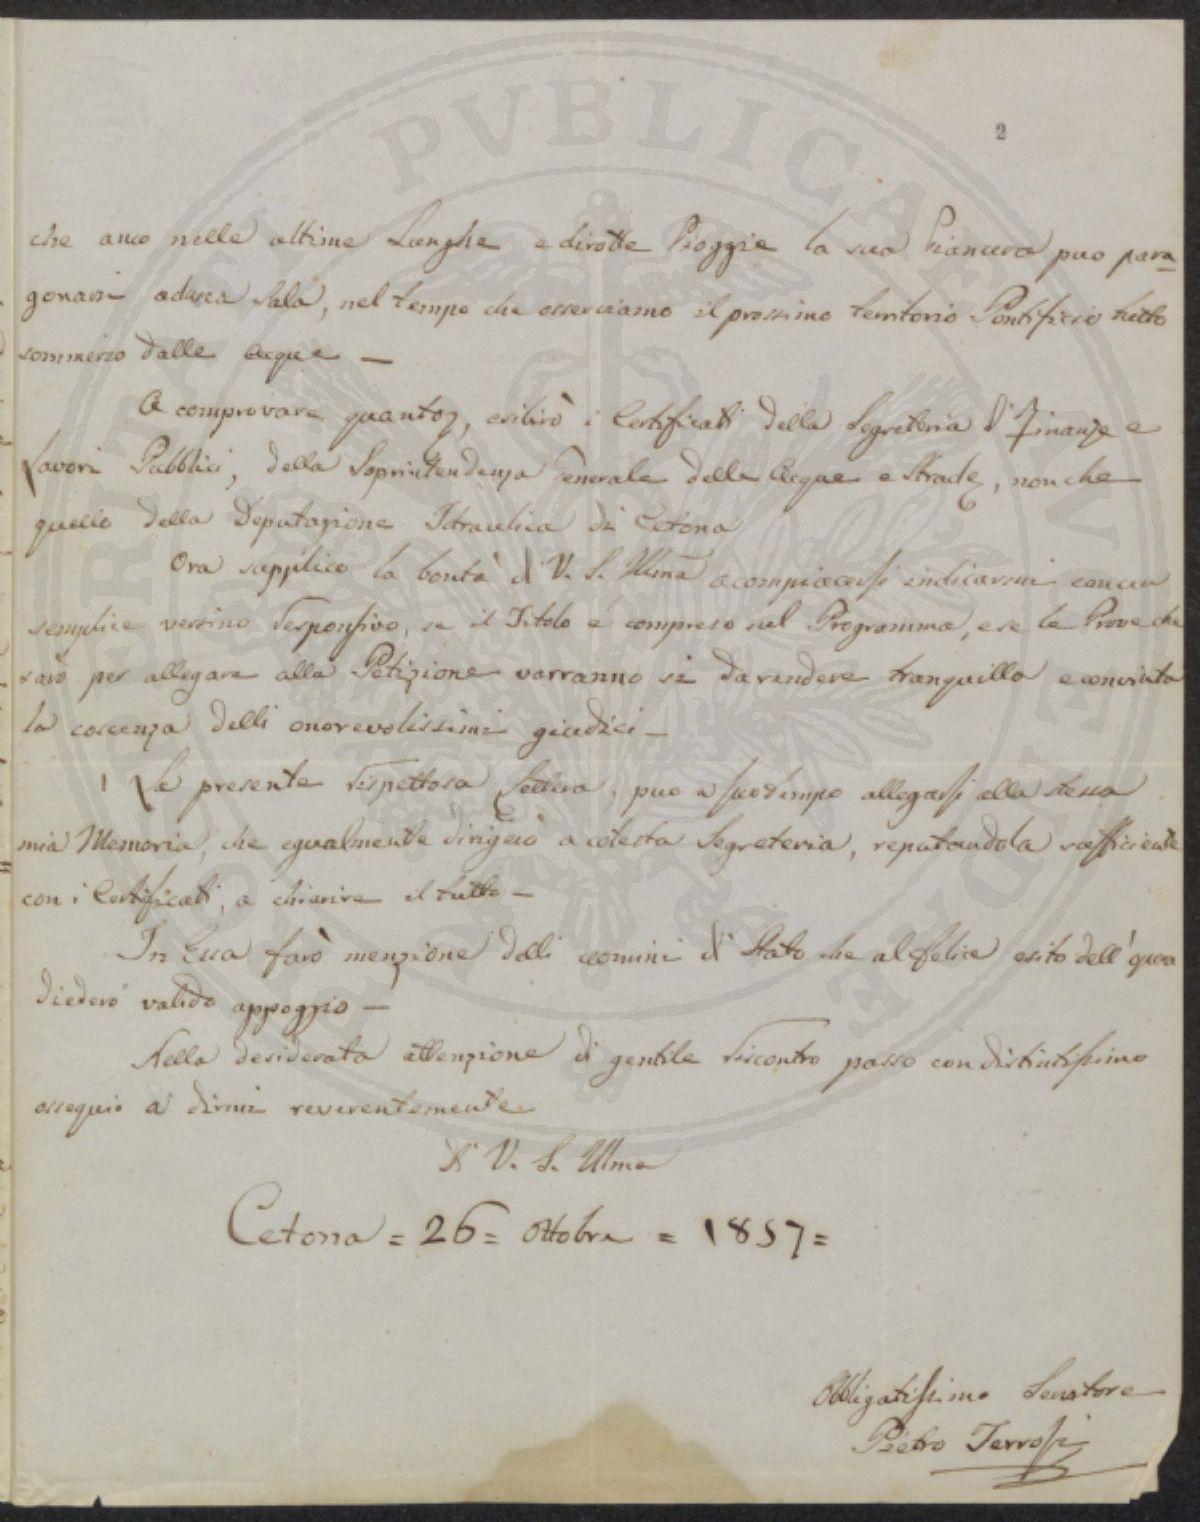 2
che anco nelle ultime Lunghe e dirotte Pioggie la sua Pianura puo para-
gonarsi ad una Sala, nel tempo che osserviamo il prossimo territorio Pontificio tutto
sommerso dalle Acque —
A comprovare quanto, esibirò i Certificati della Segreteria d'Finanze e
Lavori Pubblici, della Soprintendenza Generale delle Acque e Strade, nonche
quello della Deputazione Idraulica di Cetona
Ora supplico la bontà di V. S. Illma a compiacersi indicarmi con un
semplice versino responsivo, se il Titolo è compreso nel Programma, e se le Prove che
sarò per allegare alla Petizione varranno si da rendere tranquilla e convinta
la coscenza delli onorevolissimi giudici —
La presente rispettosa Lettera, puo a suo tempo allegarsi alla stessa
mia Memoria, che egualmente dirigerò a cotesta Segreteria, reputandola sufficiente
con i Certificati, a chiarire il tutto —
In Essa farò menzione delli uomini di Stato che al felice esito dell'opera
diedero valido appoggio —
Nella desiderata attenzione di gentile riscontro passo con distintissimo
ossequio a dirmi reverentemente
Di V. S. Illma
Cetona = 26 = Ottobre = 1857 =
Obbligatissimo Servitore
Pietro Terrosi